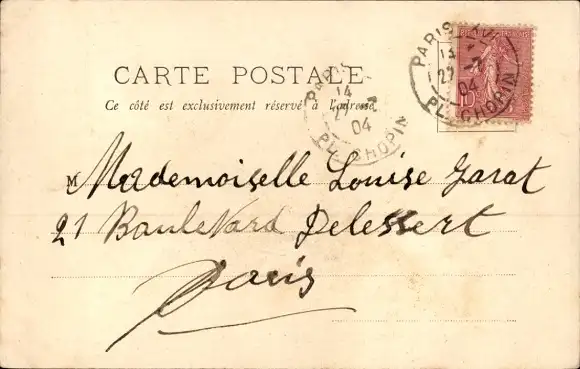 CARTE POSTALE
Ce côté est exclusivement réservé à l'adresse
PARIS
14
27 -2
04
PL. CHOPIN
PARIS XVI
14
27 -2
04
PL. CHOPIN
10
M Mademoiselle Louise Garat
21 Boulevard Delessert
Paris